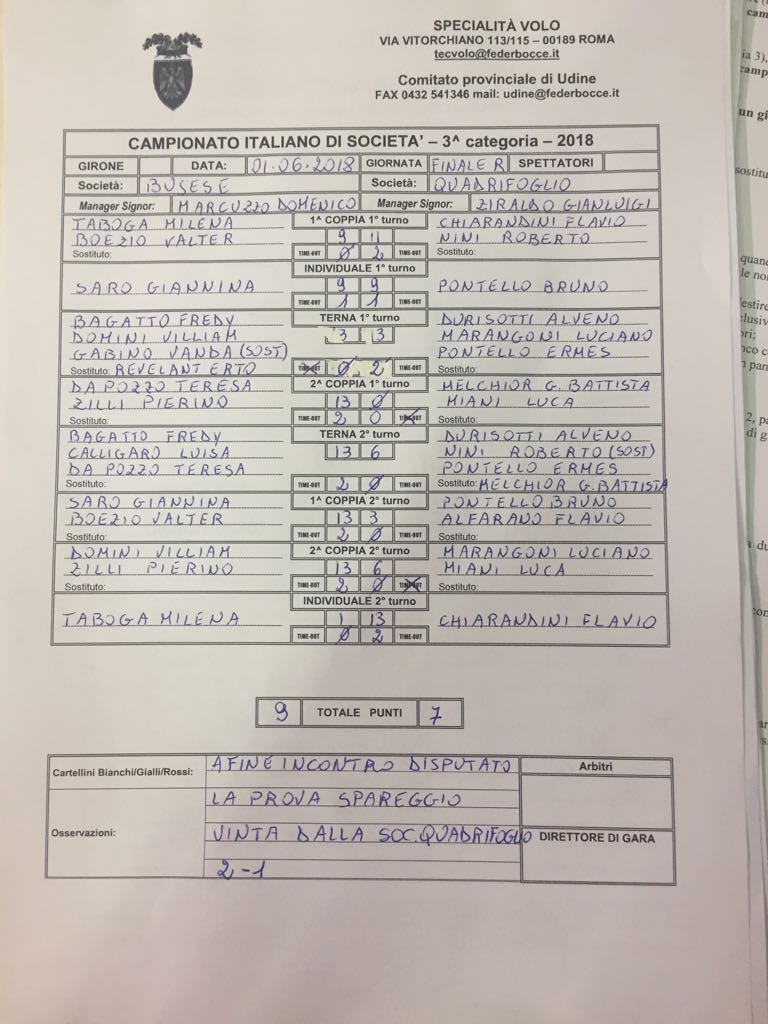 SPECIALITÀ VOLO
VIA VITORCHIANO 113/115 – 00189 ROMA
tecvolo@federbocce.it
Comitato provinciale di Udine
FAX 0432 541346 mail: udine@federbocce.it
CAMPIONATO ITALIANO DI SOCIETA' – 3^ categoria – 2018
GIRONE DATA: 01-06-2018 GIORNATA FINALE R SPETTATORI
Società: BUSESE Società: QUADRIFOGLIO
Manager Signor: MARCUZZO DOMENICO Manager Signor: ZIRALDO GIANLUIGI
TABOGA MILENA 1^ COPPIA 1° turno CHIARANDINI FLAVIO
BOEZIO VALTER 9 11 NINI ROBERTO
Sostituto: TIME-OUT 0 2 TIME-OUT
INDIVIDUALE 1° turno
SARO GIANNINA 9 9 PONTELLO BRUNO
TIME-OUT 1 1 TIME-OUT
BAGATTO FREDY TERNA 1° turno DURISOTTI ALVENO
DOMINI VILLIAM 3 3 MARANGONI LUCIANO
GABINO VANDA (SOST) PONTELLO ERMES
Sostituto: REVELANT ERTO TIME-OUT 0 2 TIME-OUT
DA POZZO TERESA 2^ COPPIA 1° turno MELCHIOR G. BATTISTA
ZILLI PIERINO 13 0 MIANI LUCA
Sostituto: TIME-OUT 2 0 TIME-OUT
BAGATTO FREDY TERNA 2° turno DURISOTTI ALVENO
CALLIGARO LUISA 13 6 NINI ROBERTO (SOST)
DA POZZO TERESA PONTELLO ERMES
Sostituto: TIME-OUT 2 0 TIME-OUT Sostituto: MELCHIOR G. BATTISTA
SARO GIANNINA 1^ COPPIA 2° turno PONTELLO BRUNO
BOEZIO VALTER 13 3 ALFARANO FLAVIO
Sostituto: TIME-OUT 2 0 TIME-OUT
DOMINI VILLIAM 2^ COPPIA 2° turno MARANGONI LUCIANO
ZILLI PIERINO 13 6 MIANI LUCA
Sostituto: TIME-OUT 2 0 TIME-OUT
INDIVIDUALE 2° turno
TABOGA MILENA 1 13 CHIARANDINI FLAVIO
TIME-OUT 0 2 TIME-OUT
9 TOTALE PUNTI 7
Cartellini Bianchi/Gialli/Rossi: A FINE INCONTRO DISPUTATO Arbitri
LA PROVA SPAREGGIO
Osservazioni: VINTA DALLA SOC. QUADRIFOGLIO DIRETTORE DI GARA
2-1